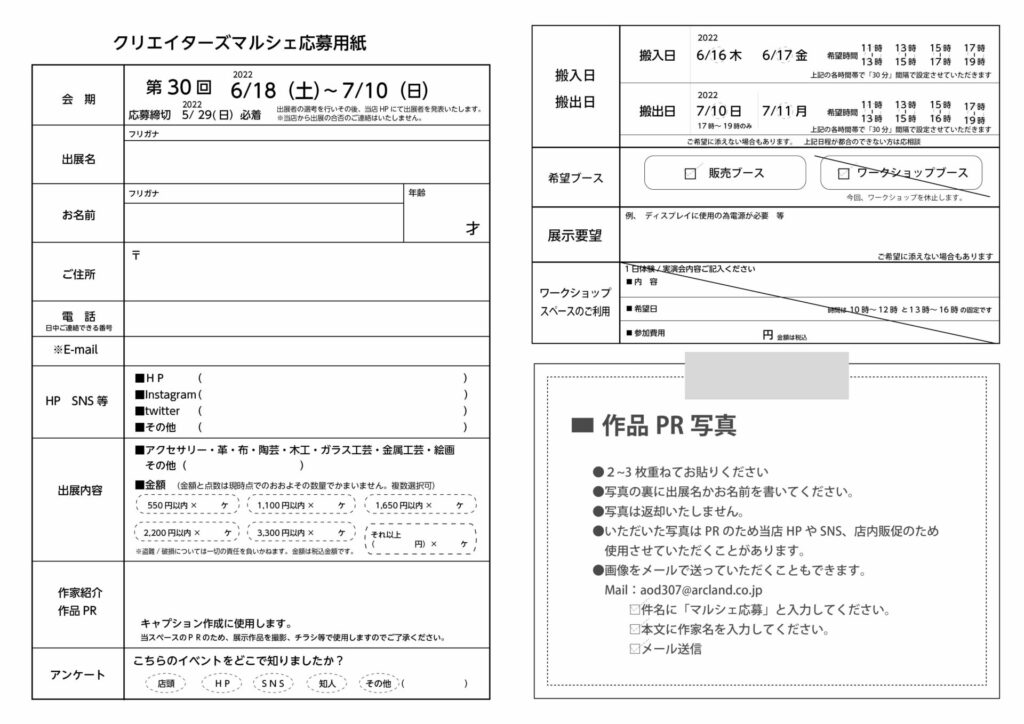 クリエイターズマルシェ応募用紙
会　期
2022
第 30 回 6/18（土）～ 7/10（日）
2022
応募締切 5/ 29( 日 ) 必着
出展者の選考を行いその後、当店 HP にて出展者を発表いたします。
※当店から出展の合否のご連絡はいたしません。
フリガナ
出展名
フリガナ
年齢
お名前
才
〒
ご住所
電　話
日中ご連絡できる番号
※E-mail
HP　SNS 等
■H P　（　）
■Instagram（　）
■twitter　（　）
■その他　（　）
出展内容
■アクセサリー・革・布・陶芸・木工・ガラス工芸・金属工芸・絵画
その他（　）
■金額　（金額と点数は現時点でのおおよその数量でかまいません。複数選択可）
550 円以内 ×　ヶ
1,100 円以内 ×　ヶ
1,650 円以内 ×　ヶ
2,200 円以内 ×　ヶ
3,300 円以内 ×　ヶ
それ以上
（　円）×　ヶ
※盗難 / 破損については一切の責任を負いかねます。金額は税込金額です。
作家紹介
作品 PR
キャプション作成に使用します。
当スペースの P R のため、展示作品を撮影、チラシ等で使用しますのでご了承ください。
アンケート
こちらのイベントをどこで知りましたか？
店頭　H P　S N S　知人　その他（　）
搬入日
搬出日
搬入日
2022
6/16 木　6/17 金
希望時間
11 時　13 時　15 時　17 時
13 時　15 時　17 時　19 時
上記の各時間帯で「30 分」間隔で設定させていただきます
搬出日
2022
7/10 日　7/11 月
17 時～ 19 時のみ
希望時間
11 時　13 時　15 時　17 時
13 時　15 時　16 時　19 時
上記の各時間帯で「30 分」間隔で設定させていただきます
ご希望に添えない場合もあります。　上記日程が都合のできない方は応相談
希望ブース
□ 販売ブース
□ ワークショップブース
今回、ワークショップを休止します。
展示要望
例、 ディスプレイに使用の為電源が必要　等
ご希望に添えない場合もあります
ワークショップ
スペースのご利用
１日体験 / 実演会内容ご記入ください
■ 内　容
■ 希望日
時間は 10 時～ 12 時 と１3 時～ 16 時 の固定です
■ 参加費用
円 金額は税込
■ 作品 PR 写真
●２~3 枚重ねてお貼りください
●写真の裏に出展名かお名前を書いてください。
●写真は返却いたしません。
●いただいた写真は PR のため当店 HP や SNS、店内販促のため
使用させていただくことがあります。
●画像をメールで送っていただくこともできます。
Mail：aod307@arcland.co.jp
☑件名に「マルシェ応募」と入力してください。
☑本文に作家名を入力してください。
☑メール送信